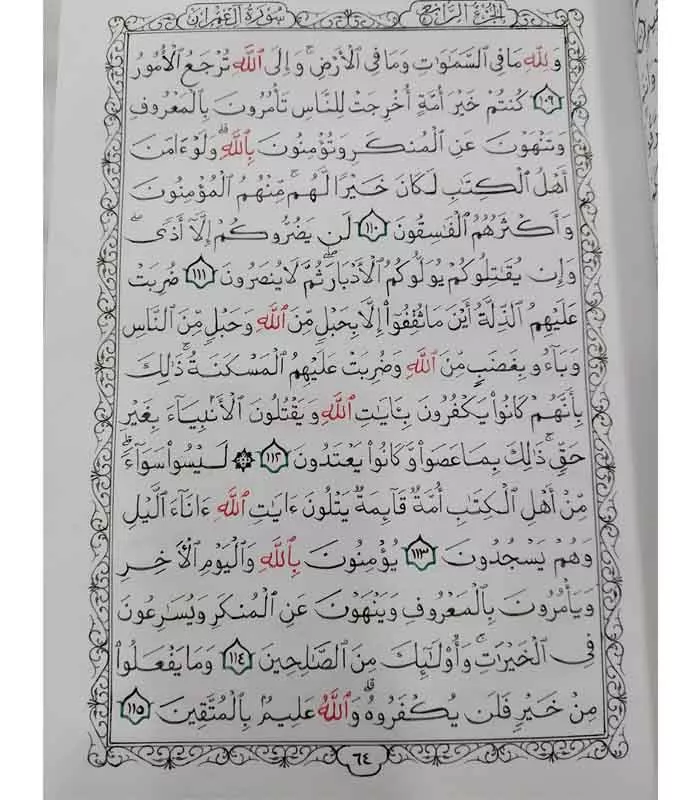 الجزء الرابع
سورة آل عمران
وَلِلَّهِ مَا فِي السَّمَٰوَٰتِ وَمَا فِي الْأَرْضِ ۚ وَإِلَى اللَّهِ تُرْجَعُ الْأُمُورُ
١٠٩ كُنتُمْ خَيْرَ أُمَّةٍ أُخْرِجَتْ لِلنَّاسِ تَأْمُرُونَ بِالْمَعْرُوفِ
وَتَنْهَوْنَ عَنِ الْمُنكَرِ وَتُؤْمِنُونَ بِاللَّهِ ۗ وَلَوْ ءَامَنَ
أَهْلُ الْكِتَٰبِ لَكَانَ خَيْرًا لَّهُم ۚ مِّنْهُمُ الْمُؤْمِنُونَ
وَأَكْثَرُهُمُ الْفَٰسِقُونَ ١١٠ لَن يَضُرُّوكُمْ إِلَّا أَذًى ۖ
وَإِن يُقَٰتِلُوكُمْ يُوَلُّوكُمُ الْأَدْبَارَ ثُمَّ لَا يُنصَرُونَ ١١١ ضُرِبَتْ
عَلَيْهِمُ الذِّلَّةُ أَيْنَ مَا ثُقِفُوٓا۟ إِلَّا بِحَبْلٍ مِّنَ اللَّهِ وَحَبْلٍ مِّنَ النَّاسِ
وَبَآءُو بِغَضَبٍ مِّنَ اللَّهِ وَضُرِبَتْ عَلَيْهِمُ الْمَسْكَنَةُ ۚ ذَٰلِكَ
بِأَنَّهُمْ كَانُوا۟ يَكْفُرُونَ بِـَٔايَٰتِ اللَّهِ وَيَقْتُلُونَ الْأَنۢبِيَآءَ بِغَيْرِ
حَقٍّ ۚ ذَٰلِكَ بِمَا عَصَوا۟ وَّكَانُوا۟ يَعْتَدُونَ ١١٢ ۞ لَيْسُوا۟ سَوَآءً ۗ
مِّنْ أَهْلِ الْكِتَٰبِ أُمَّةٌ قَآئِمَةٌ يَتْلُونَ ءَايَٰتِ اللَّهِ ءَانَآءَ الَّيْلِ
وَهُمْ يَسْجُدُونَ ١١٣ يُؤْمِنُونَ بِاللَّهِ وَالْيَوْمِ الْأَخِرِ
وَيَأْمُرُونَ بِالْمَعْرُوفِ وَيَنْهَوْنَ عَنِ الْمُنكَرِ وَيُسَٰرِعُونَ
فِي الْخَيْرَٰتِ ۚ وَأُو۟لَٰٓئِكَ مِنَ الصَّٰلِحِينَ ١١٤ وَمَا يَفْعَلُوا۟
مِنْ خَيْرٍ فَلَن يُكْفَرُوهُ ۗ وَاللَّهُ عَلِيمٌۢ بِالْمُتَّقِينَ ١١٥
٦٤